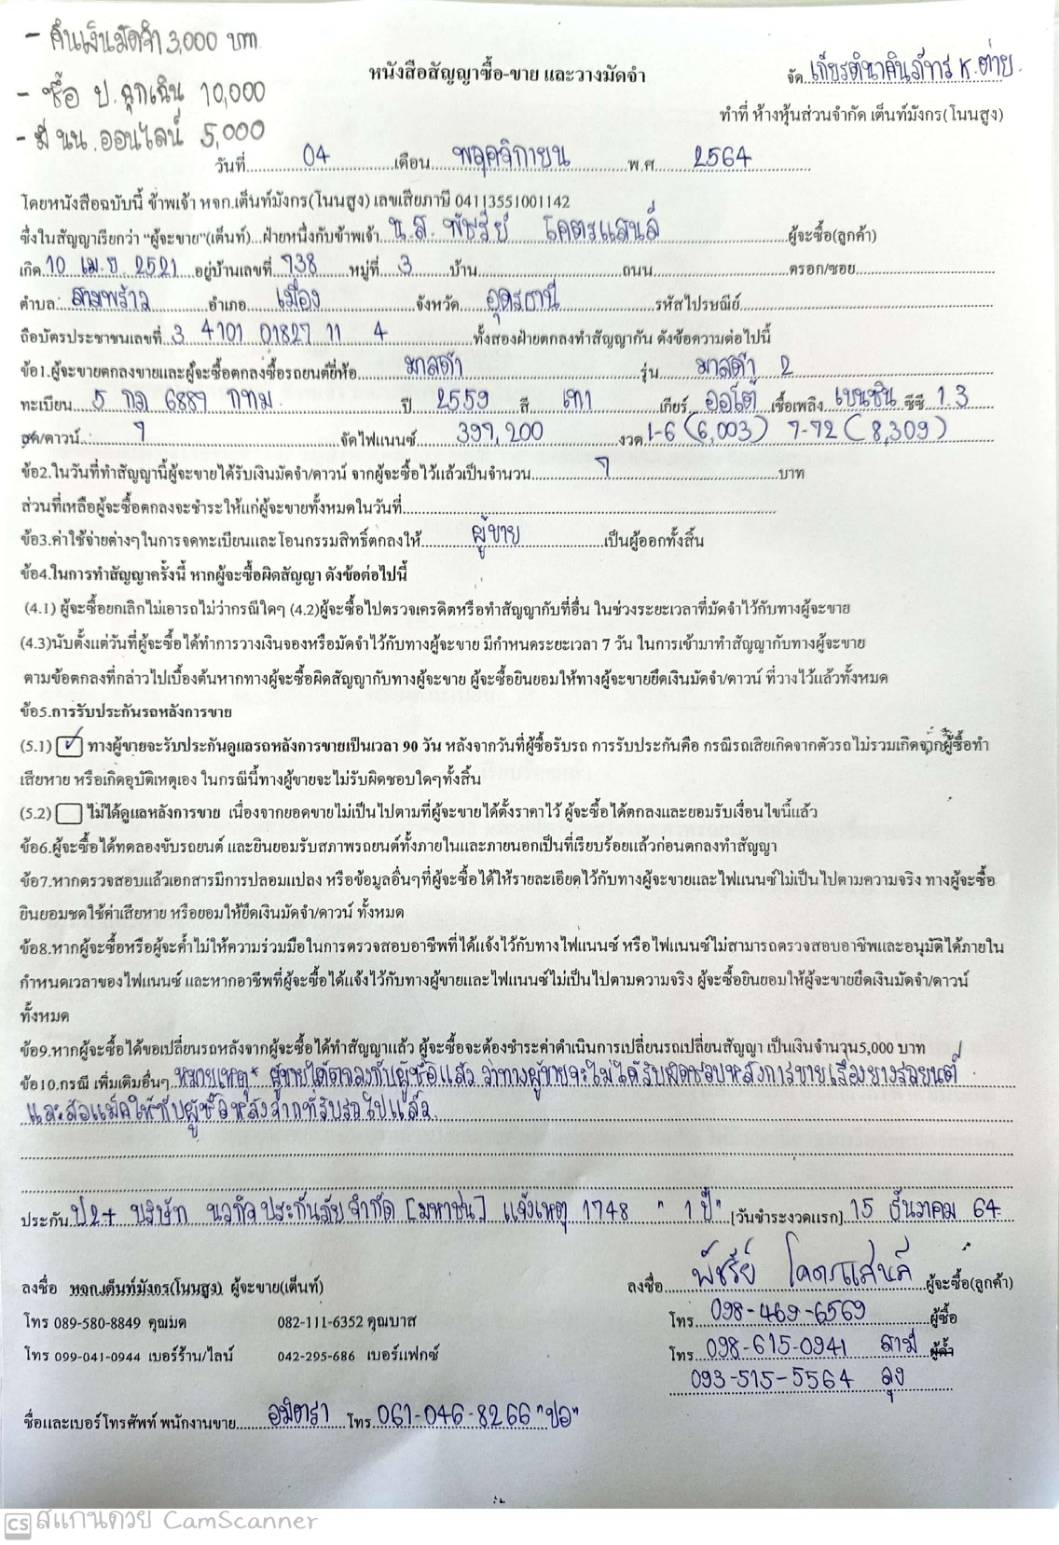 - คืนเงินมัดจำ 3,000 บาท
- ซื้อ ป.ฉุกเฉิน 10,000
- มี นน. ออนไลน์ 5,000
หนังสือสัญญาซื้อ-ขาย และวางมัดจำ
จัด เกียรตินาคินภัทร K.ต่าย.
ทำที่ ห้างหุ้นส่วนจำกัด เต็นท์มังกร(โนนสูง)
วันที่ 04 เดือน พฤศจิกายน พ.ศ. 2564
โดยหนังสือฉบับนี้ ข้าพเจ้า หจก.เต็นท์มังกร(โนนสูง) เลขเสียภาษี 04113551001142
ซึ่งในสัญญาเรียกว่า "ผู้จะขาย"(เต็นท์)...ฝ่ายหนึ่งกับข้าพเจ้า น.ส. พัชรีย์ โคตรแสนลี ผู้จะซื้อ(ลูกค้า)
เกิด 10 เม.ย. 2521 อยู่บ้านเลขที่ 738 หมู่ที่ 3 บ้าน ถนน ตรอก/ซอย
ตำบล สามพร้าว อำเภอ เมือง จังหวัด อุดรธานี รหัสไปรษณีย์
ถือบัตรประชาชนเลขที่ 3 4101 01827 11 4 ทั้งสองฝ่ายตกลงทำสัญญากัน ดังข้อความต่อไปนี้
ข้อ1.ผู้จะขายตกลงขายและผู้จะซื้อตกลงซื้อรถยนต์ยี่ห้อ มาสด้า รุ่น มาสด้า 2
ทะเบียน 5 กฎ 6889 กทม ปี 2559 สี เทา เกียร์ ออโต้ เชื้อเพลิง เบนซิน ซีซี 1.3
สด/ดาวน์ จัดไฟแนนซ์ 397,200 งวด 1-6 (6,003) 7-72 (8,309)
ข้อ2.ในวันที่ทำสัญญานี้ผู้จะขายได้รับเงินมัดจำ/ดาวน์ จากผู้จะซื้อไว้แล้วเป็นจำนวน บาท
ส่วนที่เหลือผู้จะซื้อตกลงจะชำระให้แก่ผู้จะขายทั้งหมดในวันที่
ข้อ3.ค่าใช้จ่ายต่างๆในการจดทะเบียนและโอนกรรมสิทธิ์ตกลงให้ ผู้ขาย เป็นผู้ออกทั้งสิ้น
ข้อ4.ในการทำสัญญาครั้งนี้ หากผู้จะซื้อผิดสัญญา ดังข้อต่อไปนี้
(4.1) ผู้จะซื้อยกเลิกไม่เอารถไม่ว่ากรณีใดๆ (4.2)ผู้จะซื้อไปตรวจเครดิตหรือทำสัญญากับที่อื่น ในช่วงระยะเวลาที่มัดจำไว้กับทางผู้จะขาย
(4.3)นับตั้งแต่วันที่ผู้จะซื้อได้ทำการวางเงินจองหรือมัดจำไว้กับทางผู้จะขาย มีกำหนดระยะเวลา 7 วัน ในการเข้ามาทำสัญญากับทางผู้จะขาย
ตามข้อตกลงที่กล่าวไปเบื้องต้นหากทางผู้จะซื้อผิดสัญญากับทางผู้จะขาย ผู้จะซื้อยินยอมให้ทางผู้จะขายยึดเงินมัดจำ/ดาวน์ ที่วางไว้แล้วทั้งหมด
ข้อ5.การรับประกันรถหลังการขาย
(5.1) ✓ ทางผู้ขายจะรับประกันดูแลรถหลังการขายเป็นเวลา 90 วัน หลังจากวันที่ผู้ซื้อรับรถ การรับประกันคือ กรณีรถเสียเกิดจากตัวรถไม่รวมเกิดจากผู้ซื้อทำ
เสียหาย หรือเกิดอุบัติเหตุเอง ในกรณีนี้ทางผู้ขายจะไม่รับผิดชอบใดๆทั้งสิ้น
(5.2) ไม่ได้ดูแลหลังการขาย เนื่องจากยอดขายไม่เป็นไปตามที่ผู้จะขายได้ตั้งราคาไว้ ผู้จะซื้อได้ตกลงและยอมรับเงื่อนไขนี้แล้ว
ข้อ6.ผู้จะซื้อได้ทดลองขับรถยนต์ และยินยอมรับสภาพรถยนต์ทั้งภายในและภายนอกเป็นที่เรียบร้อยแล้วก่อนตกลงทำสัญญา
ข้อ7.หากตรวจสอบแล้วเอกสารมีการปลอมแปลง หรือข้อมูลอื่นๆที่ผู้จะซื้อได้ให้รายละเอียดไว้กับทางผู้จะขายและไฟแนนซ์ไม่เป็นไปตามความจริง ทางผู้จะซื้อ
ยินยอมชดใช้ค่าเสียหาย หรือยอมให้ยึดเงินมัดจำ/ดาวน์ ทั้งหมด
ข้อ8.หากผู้จะซื้อหรือผู้จะค้ำไม่ให้ความร่วมมือในการตรวจสอบอาชีพที่ได้แจ้งไว้กับทางไฟแนนซ์ หรือไฟแนนซ์ไม่สามารถตรวจสอบอาชีพและอนุมัติได้ภายใน
กำหนดเวลาของไฟแนนซ์ และหากอาชีพที่ผู้จะซื้อได้แจ้งไว้กับทางผู้ขายและไฟแนนซ์ไม่เป็นไปตามความจริง ผู้จะซื้อยินยอมให้ผู้จะขายยึดเงินมัดจำ/ดาวน์
ทั้งหมด
ข้อ9.หากผู้จะซื้อได้ขอเปลี่ยนรถหลังจากผู้จะซื้อได้ทำสัญญาแล้ว ผู้จะซื้อจะต้องชำระค่าดำเนินการเปลี่ยนรถเปลี่ยนสัญญา เป็นเงินจำนวน5,000 บาท
ข้อ10.กรณี เพิ่มเติมอื่นๆ หมายเหตุ* ผู้ขายได้ตกลงกับผู้ซื้อแล้ว ว่าทางผู้ขายจะไม่ได้รับผิดชอบหลังการขายเรื่องยางรถยนต์
และล้อแม็คให้กับผู้ซื้อหลังจากที่รับรถไปแล้ว.
ประกัน ป2+ บริษัท นวกิจประกันภัย จำกัด [มหาชน] แจ้งเหตุ 1748 " 1 ปี" [วันชำระงวดแรก] 15 ธันวาคม 64
ลงชื่อ หจก.เต็นท์มังกร(โนนสูง) ผู้จะขาย(เต็นท์)
ลงชื่อ พัชรีย์ โคตรแสนลี ผู้จะซื้อ(ลูกค้า)
โทร 089-580-8849 คุณมด 082-111-6352 คุณบาส
โทร 098-469-6569 ผู้ซื้อ
โทร 099-041-0944 เบอร์ร้าน/ไลน์ 042-295-686 เบอร์แฟกซ์
โทร 098-615-0941 สามี ผู้ค้ำ
093-515-5564 ลุง
ชื่อและเบอร์โทรศัพท์ พนักงานขาย อมิตรา โทร 061-046-8266 "ปอ"
CS สแกนด้วย CamScanner